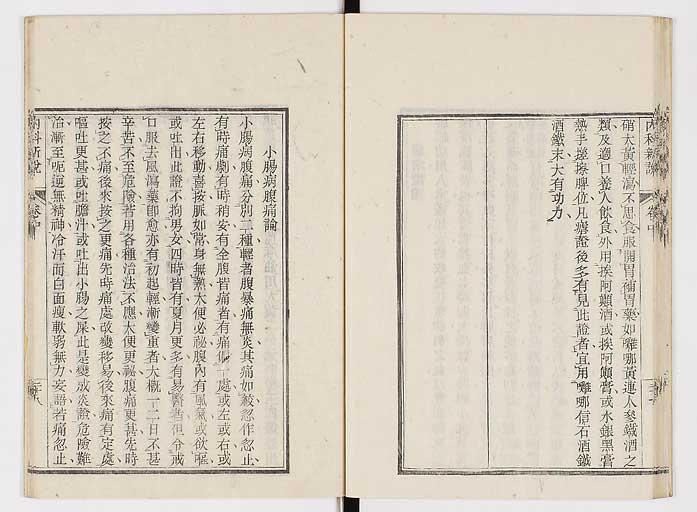 內科新說
卷中
硝大黃輕瀉不思食服開胃補胃藥如嗹哪黃連人參鐵酒之
類及適口養人飲食外用挨阿顛酒或挨阿顛膏或水銀黑膏
熱手擦按脾位凡瘧證後多有見此證者宜用嗹哪信石酒鐵
酒鐵末大有功力
小腸病腹痛論
小腸病腹痛分別二種輕者腹暴痛無炎其痛如絞忽作忽止
有時痛劇有時稍安有全腹皆痛者有痛僅一處或左或右或
左右移動喜按脈如常身無熱大便必祕腹內有風氣或欲嘔
或吐出此證不拘男女四時皆有夏月更多有易醫者但分戒
口服去風瀉藥卽愈亦有初起輕漸變重者大概一二日不甚
辛苦不至危險若用各種治法不應大便更祕腹痛更甚先時
按之不痛後來按之更痛先時痛處改變移易後來痛有定處
嘔吐更甚或吐膽汁或吐出小腸之屎此是變成炎證危險難
治漸至呃逆無精神冷汗而白面瘦軟弱無力妄語若痛忽止
內科新說
卷中